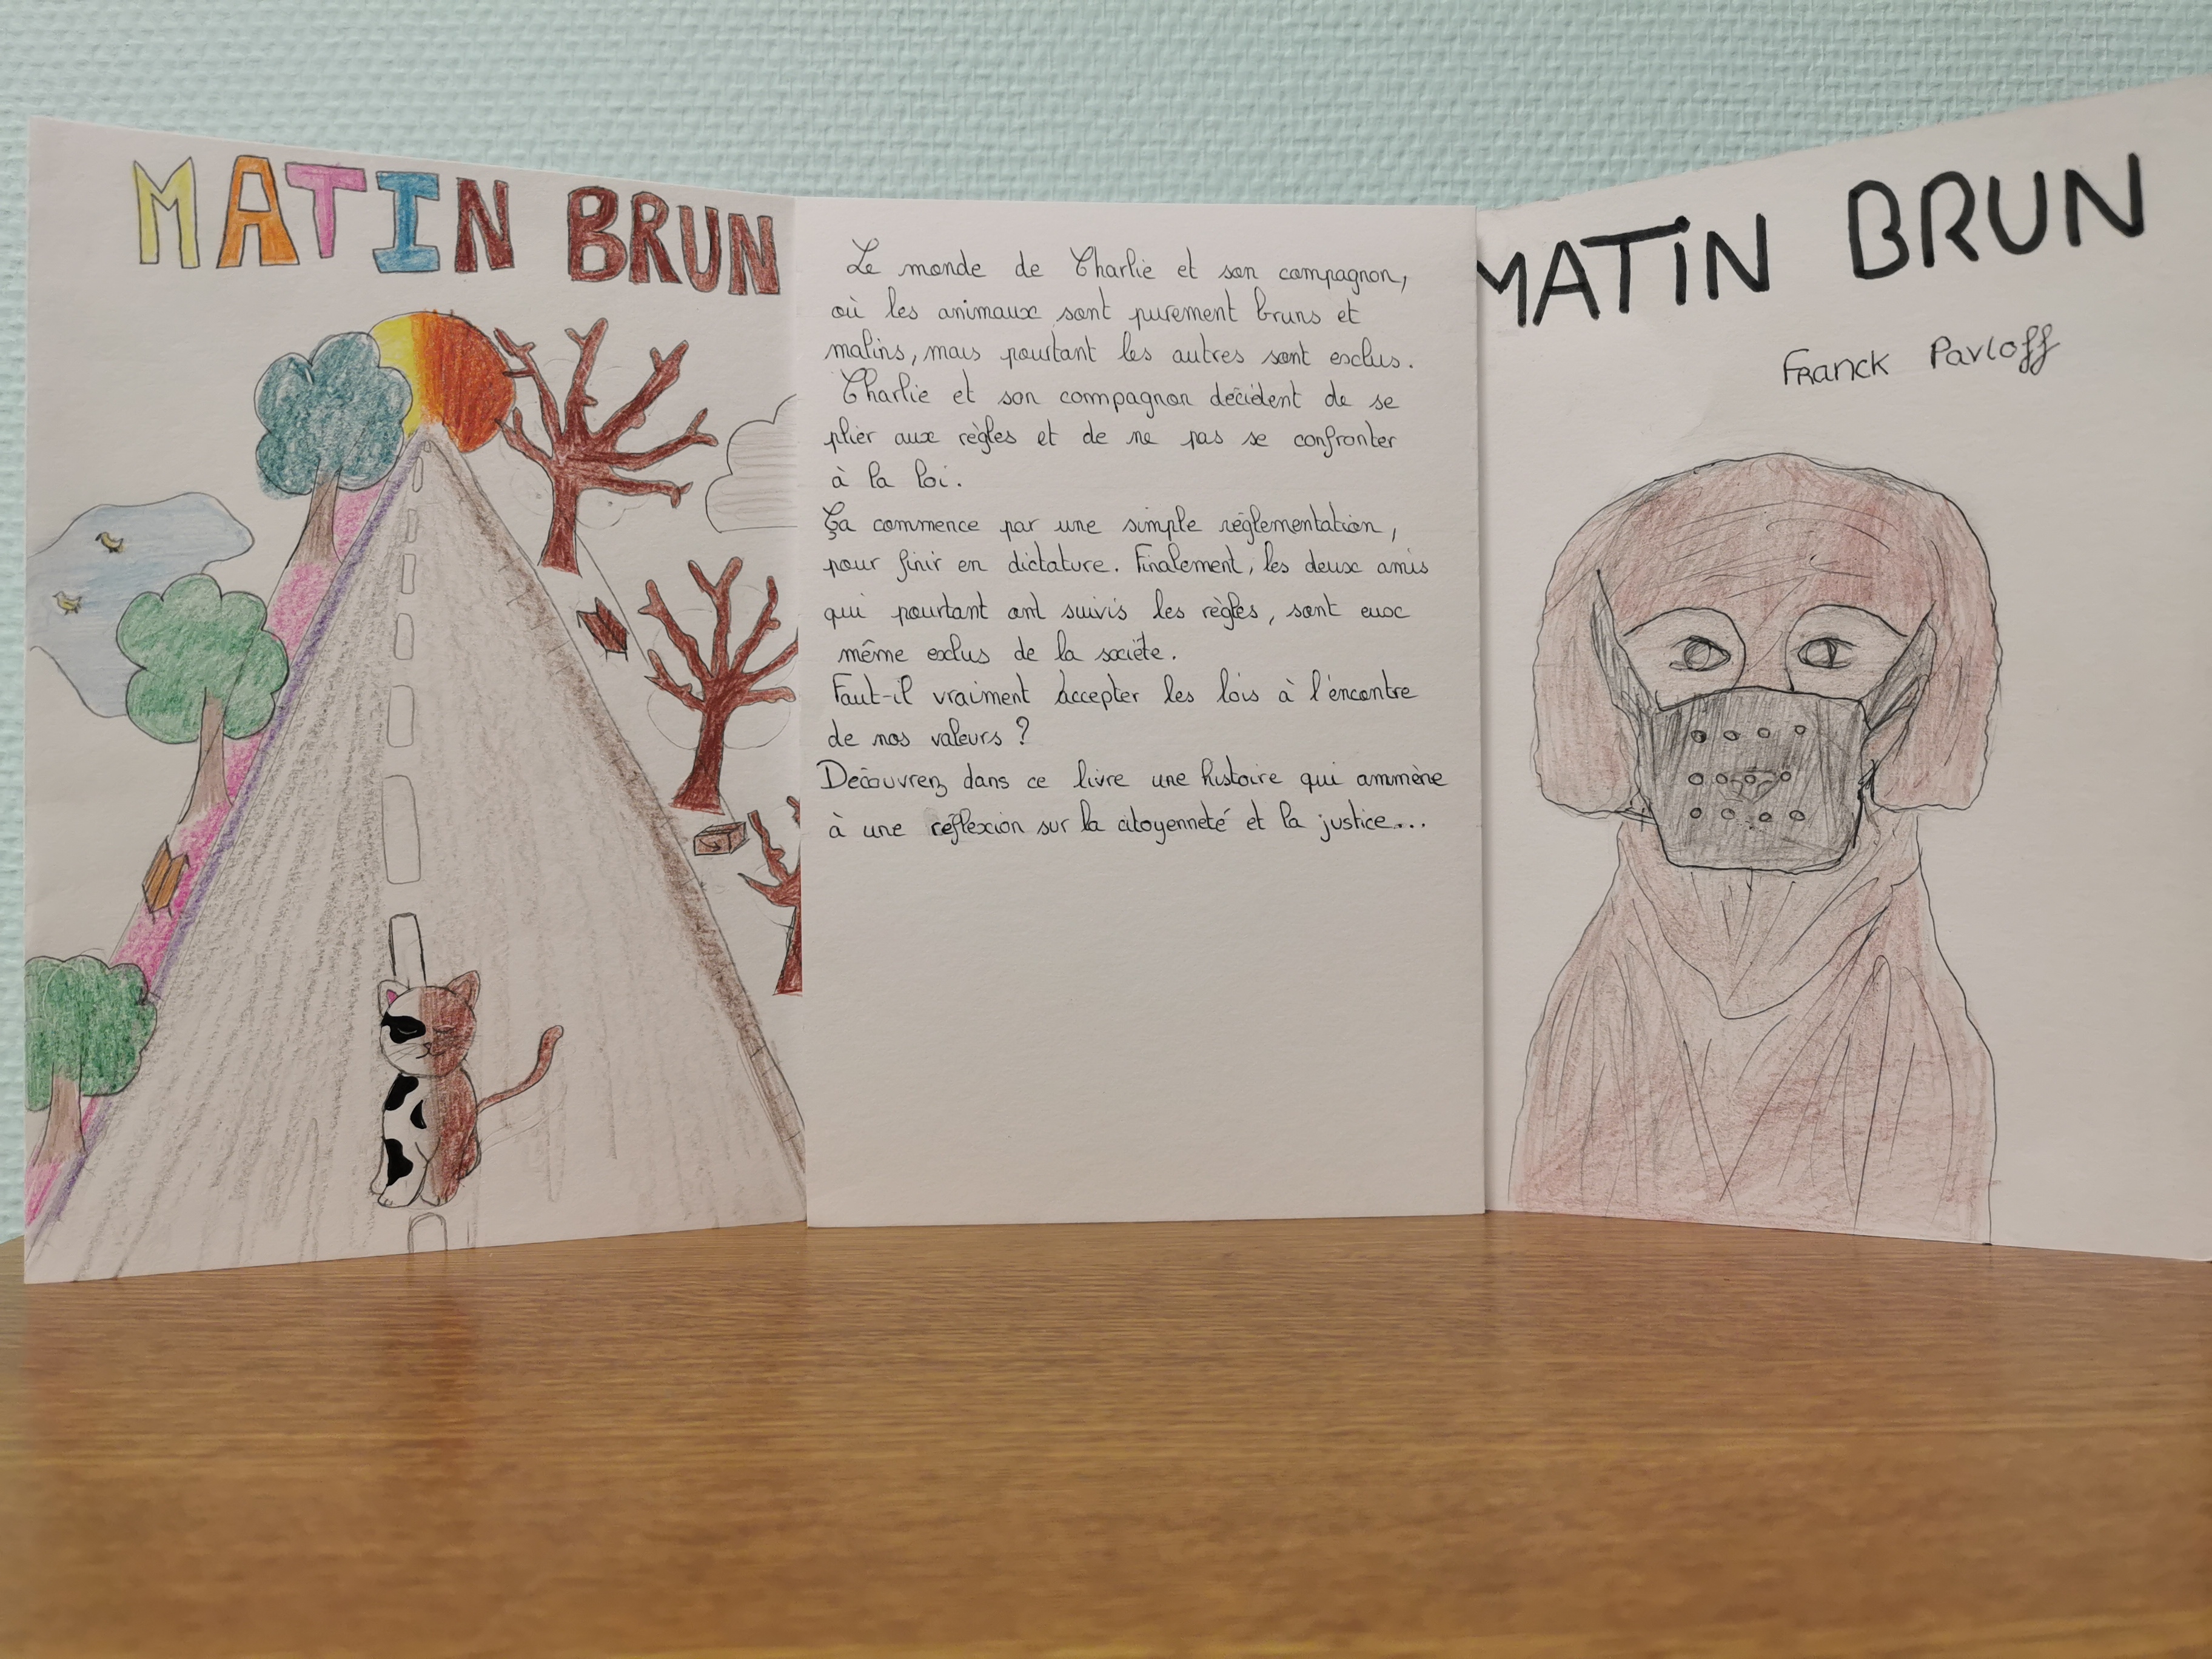 MATIN BRUN
Le monde de Charlie et son compagnon,
où les animaux sont purement bruns et
malins, mais pourtant les autres sont exclus.
Charlie et son compagnon décident de se
plier aux règles et de ne pas se confronter
à la loi.
Ça commence par une simple réglementation,
pour finir en dictature. Finalement, les deux amis
qui pourtant ont suivis les règles, sont eux
même exclus de la société.
Faut-il vraiment accepter les lois à l'encontre
de nos valeurs ?
Découvrez dans ce livre une histoire qui ammène
à une réflexion sur la citoyenneté et la justice...
MATIN BRUN
Franck Pavloff